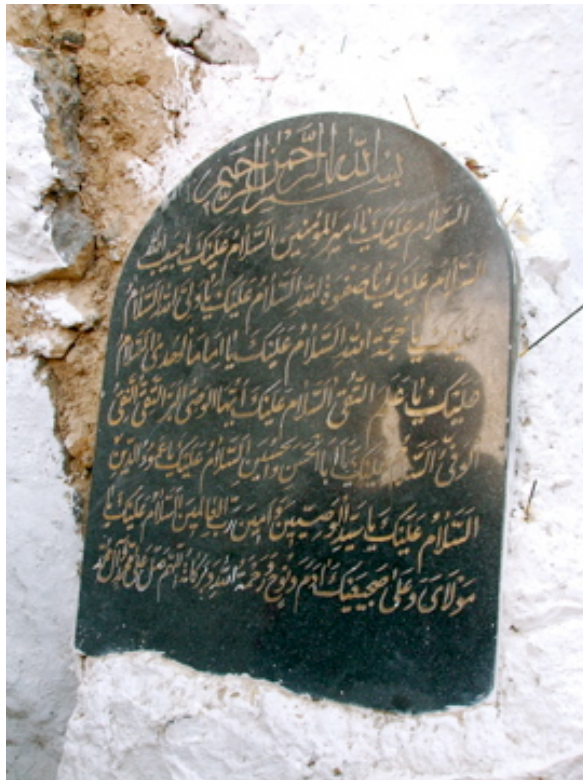 بسم الله الرحمن الرحیم
السَّلامُ عَلَیْکَ یٰا اَمیرَ المُؤمِنینَ السَّلامُ عَلَیْکَ یٰا حَبیبَ اللهِ
السَّلامُ عَلَیْکَ یٰا صَفْوَةَ اللهِ السَّلامُ عَلَیْکَ یٰا وَلِیَّ اللهِ السَّلامُ
عَلَیْکَ یٰا حُجَّةَ اللهِ السَّلامُ عَلَیْکَ یٰا اِمامَ الْهُدىٰ السَّلامُ
عَلَیْکَ یٰا عَلَمَ التُّقىٰ السَّلامُ عَلَیْکَ اَیُّهَا الوَصِیُّ البَرُّ التَّقِیُّ النَّقِیُّ
الوَفِیُّ السَّلامُ عَلَیْکَ یٰا اَبَا الحَسَنِ وَالحُسَینِ السَّلامُ عَلَیْکَ یٰا عَمُودَ الدّینِ
السَّلامُ عَلَیْکَ یٰا سَیِّدَ الْوَصِیّینَ وَ اَمینَ رَبِّ العٰالَمینَ السَّلامُ عَلَیْکَ یٰا
مَوْلاىَ وَ عَلىٰ ضَجیعَیْکَ آدَمَ وَ نُوحٍ وَ رَحْمَةُ اللهِ وَ بَرَکاتُهُ اللهم صل علی محمد و آل محمد